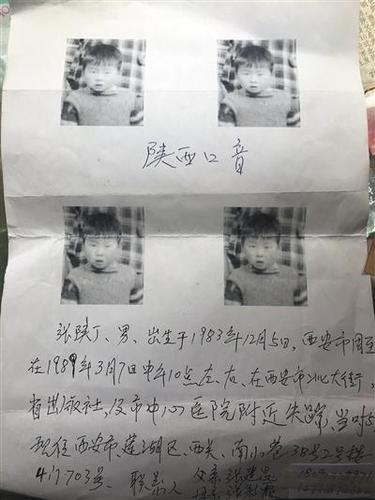 陕西口音
张陕丁、男、出生于1983年12月5日，西安市周至
在1989年3月7日中午10点左、右、在西安市北大街，
省出版社，及市中心医院附近失踪、当时5
现住西安市莲湖区、西关、南小巷38号2号楼
4门703号 联系人 父亲